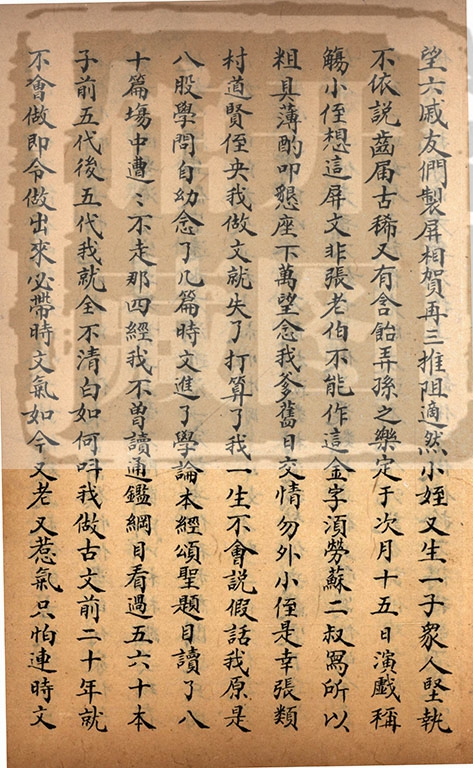 望六戚友們製屏相賀再三推阻適然小姪又生一子衆人堅執
不依說齒届古稀又有含飴弄孫之樂定于次月十五日演戯稱
觴小侄想這屏文非張老伯不能作這金字湏勞蘇二叔冩所以
粗具薄酌叩懇座下萬望念我爹舊日交情勿外小侄是幸張類
村道賢侄央我做文就失了打算了我一生不會説假話我原是
八股學問自幼念了几篇時文進了學論本經頌聖題目讀了八
十篇塲中遭〻不走那四經我不曽讀通鑑綱目看過五六十本
子前五代後五代我就全不清白如何呌我做古文前二十年就
不會做即令做出來必帶時文氣如今又老又惹氣只怕連時文